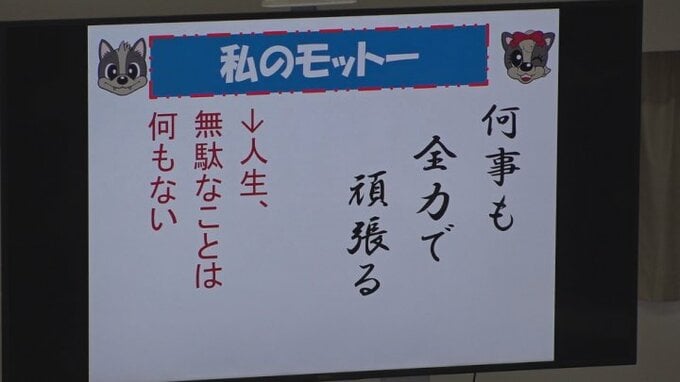 私のモットー
何事も
全力で
頑張る
↓人生、
無駄なことは
何もない